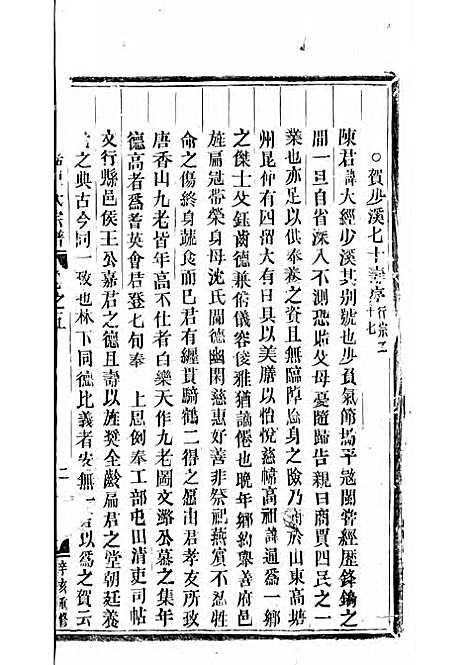 ○賀少溪七十壽序 行宗二十七
陳君諱大經少溪其别號也少負氣節揚平寇關嘗經歷鋒鏑之
間一旦自省深入不測恐貽父母憂隨歸告親日商賈四民之一
業也亦足以供奉養之資且無臨陣危身之險乃商於山東高塘
州昆仲有四留大有日具以美膳以怡悅慈幃高祖諱通爲一鄉
之傑士父鈺齒德兼備儀容俊雅猶謙倦也晩年鄉約舉善府邑
旌扁冠帶榮身母沈氏閫德幽閑慈惠好善非祭祀燕賓不忍牲
命之傷終身蔬食而已君有纏貫騎鶴二得之愿由君孝友所致
唐香山九老皆年高不仕者白樂天作九老圖文潞公慕之集年
德高者爲耆英會君登七旬奉 上恩劍奉工部屯田清吏司帖
文行縣邑侯王公嘉君之德且壽以旌奬全齡扁君之堂朝廷養
之典古今同一致也林下同德比義者安無一言以爲之賀云
大宗譜 卷之五 二 辛亥重修